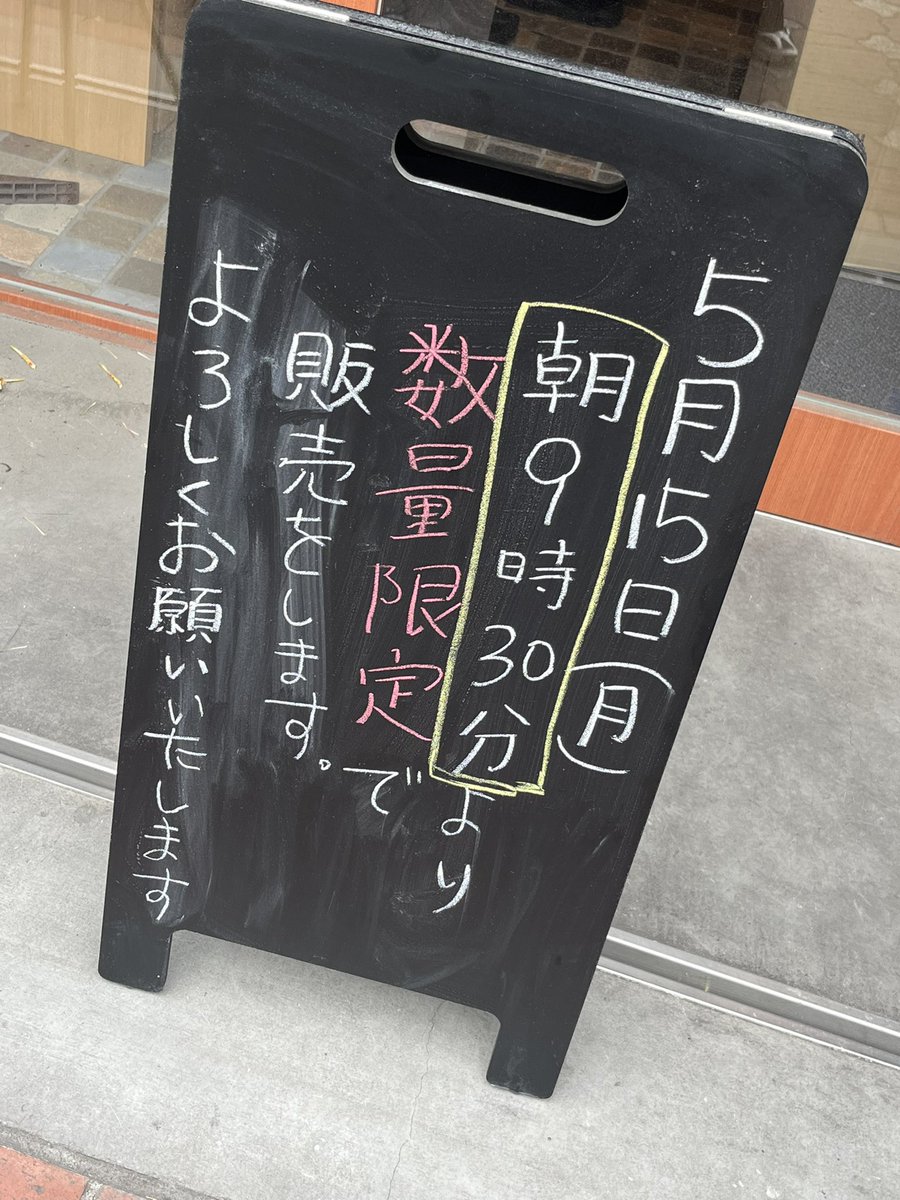 5月15日(月)
朝9時30分より
数量限定で
販売をします。
よろしくお願いいたします